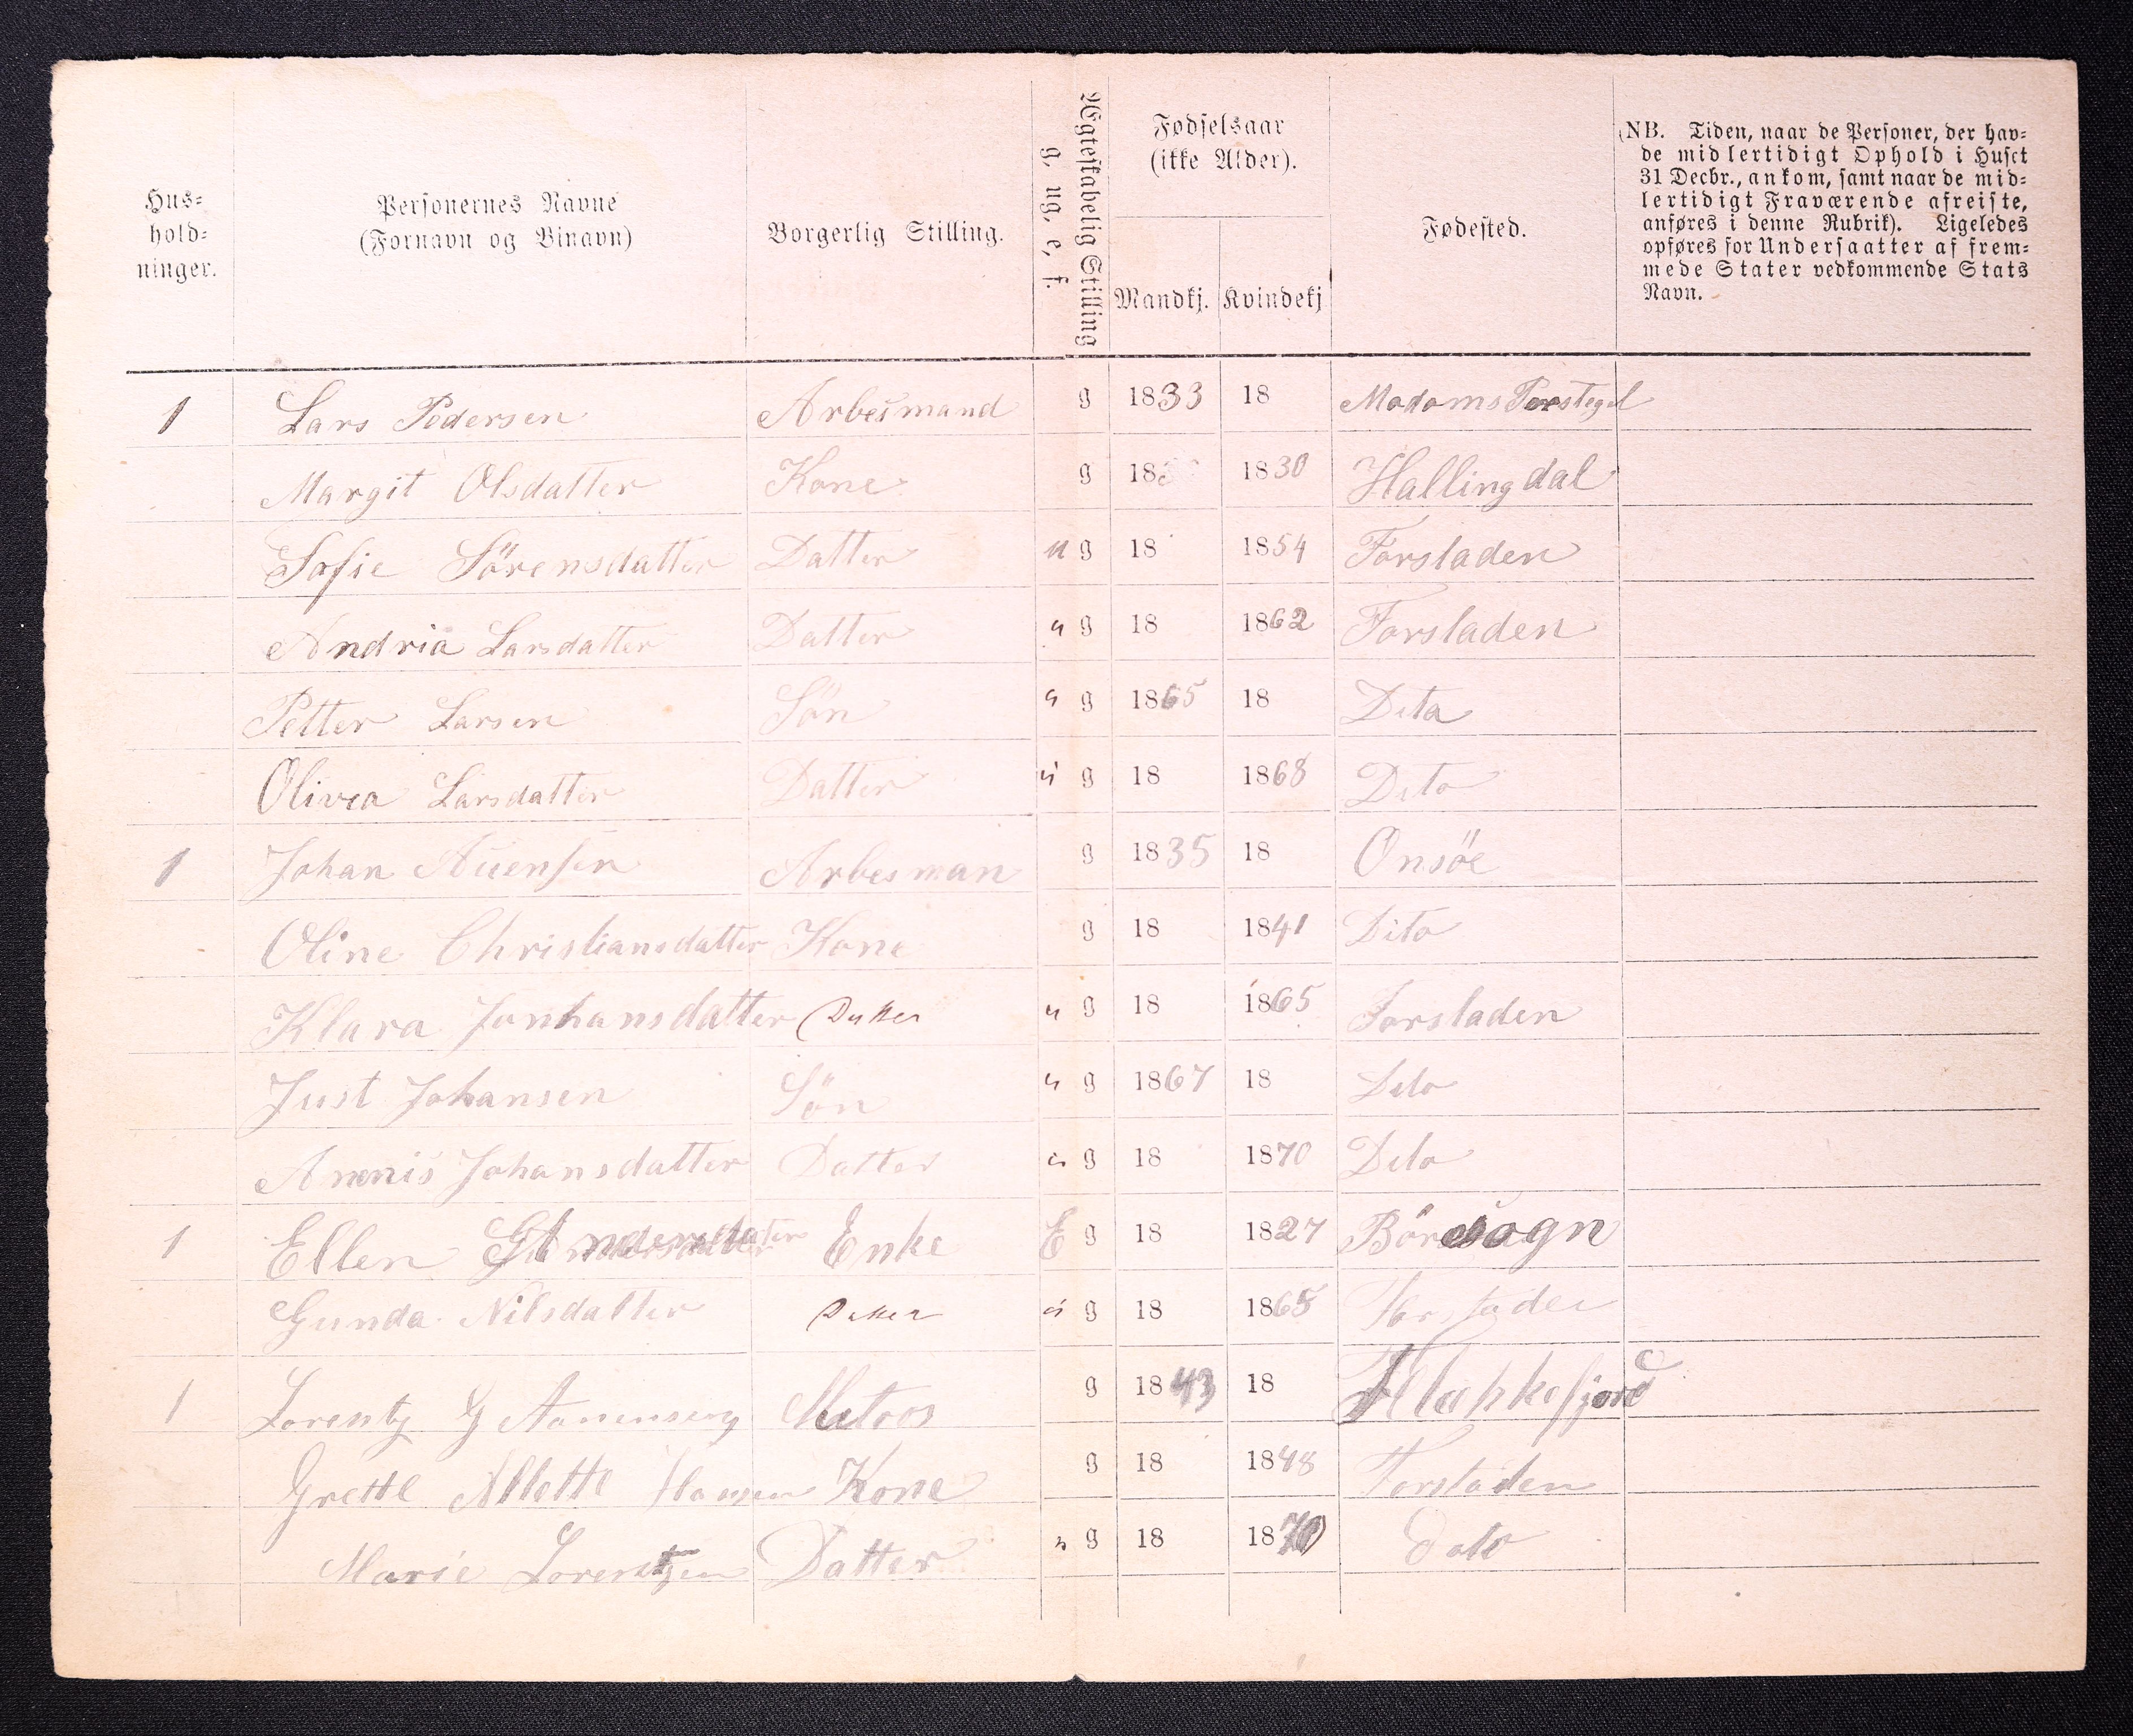 Hus-
hold-
ninger.
Personernes Navne
(Fornavn og Binavn)
Borgerlig Stilling.
Ægteskabelig Stilling
g, ug, e, f.
Fødselsaar
(ikke Alder).
Mandkj. Kvindekj
Fødested.
(NB. Tiden, naar de Personer, der hav-
de midlertidigt Ophold i Huset
31 Decbr., ankom, samt naar de mid-
lertidigt Fraværende afreiste,
anføres i denne Rubrik). Ligeledes
opføres for Undersaatter af frem-
mede Stater vedkommende Stats
Navn.
1 Lars Pedersen Arbeismand g 1833 18 Madams
Margit Olsdatter Kone g 18 1830 Hallingdal
Sofie Sörensdatter Datter u g 18 1854 Forstaden
Andria Larsdatter Datter u g 18 1862 Forstaden
Petter Larsen Sön u g 1865 18 Dito
Olivea Larsdatter Datter u g 18 1868 Dito
1 Johan g 1835 18 Onsöe
Arbesman
Oline Christiansdatter Kone g 18 1841 Dito
Klara Jonhansdatter Datter u g 18 1865 Forstaden
Just Johansen Sön u g 1867 18 Dito
Johansdatter Datter u g 18 1870 Dito
1 Ellen Enke E g 18 1827
Gunda Nilsdatter Datter u g 18 1865 Forstaden
1 Lorentz Matros g 1843 18
Grette Kone g 18 1848 Forstaden
Marie Lorentzen Datter u g 18 1870 Dito